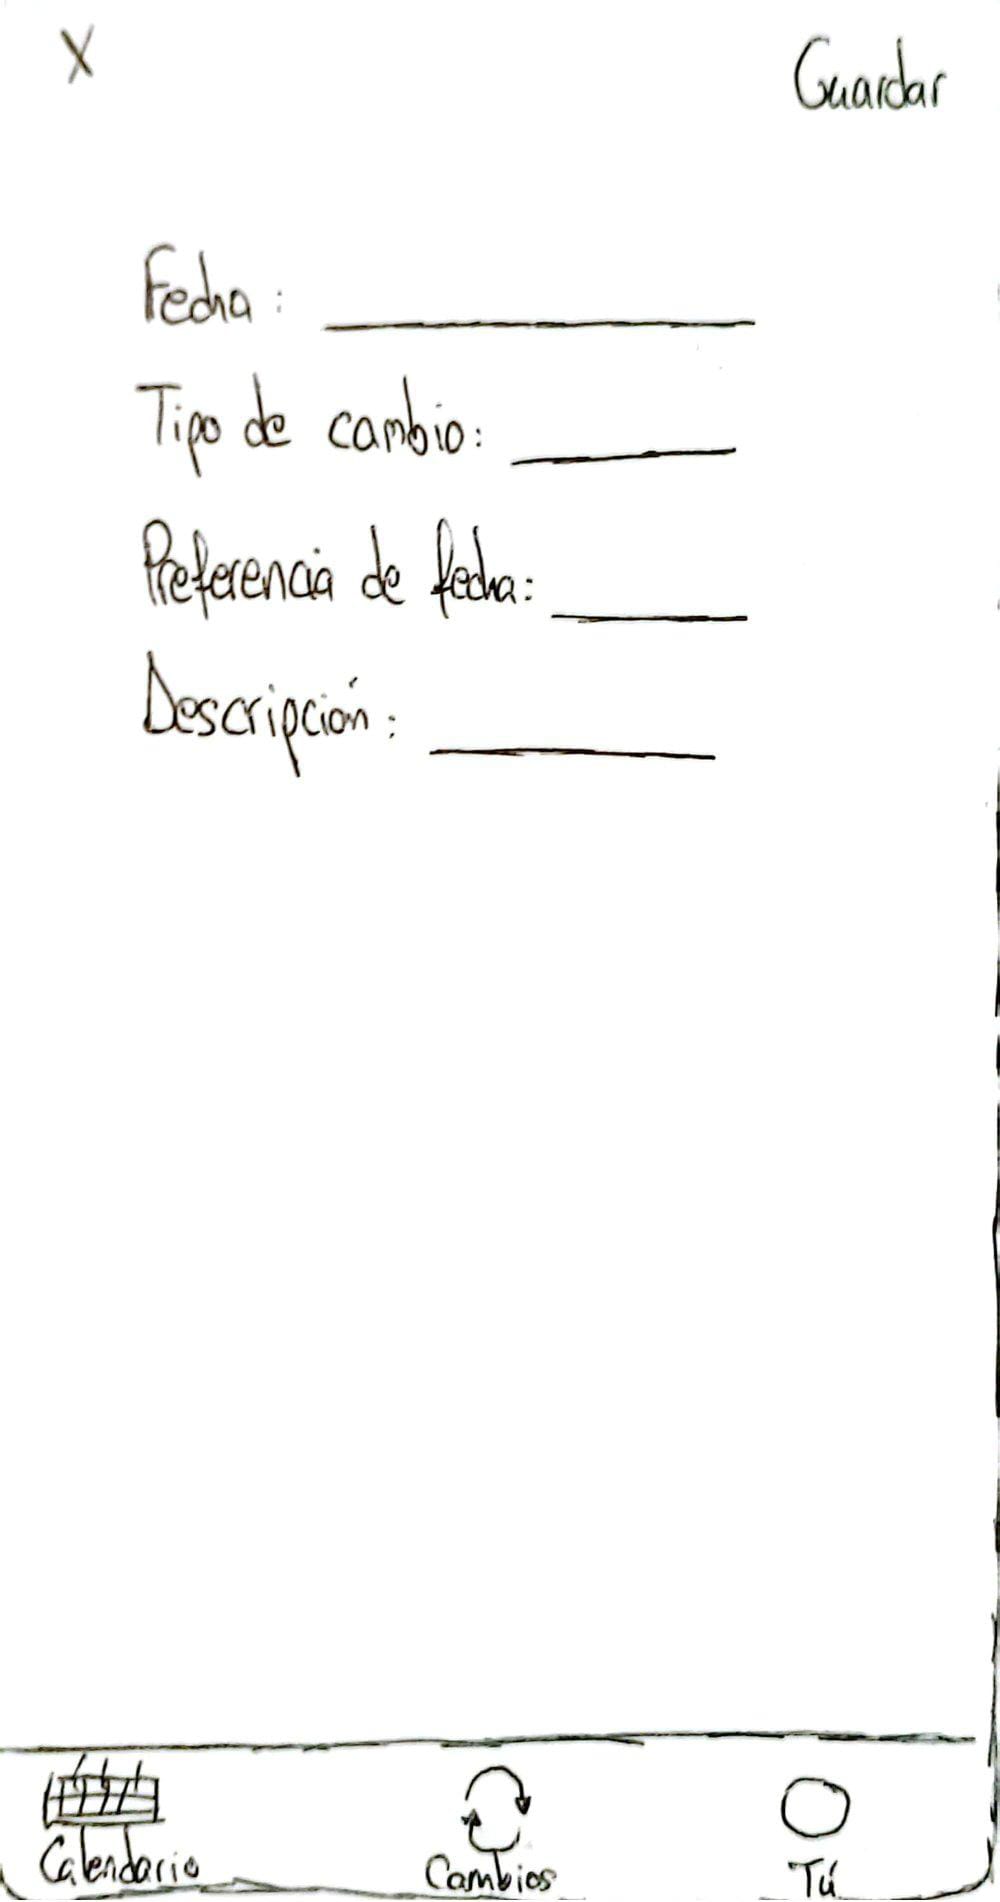 X
Guardar
Fecha: 
Tipo de cambio: 
Preferencia de fecha: 
Descripción: 
Calendario
Cambios
Tú